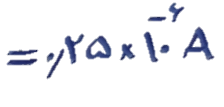 = ۰٫۲۵ × ۱۰⁻⁶ A